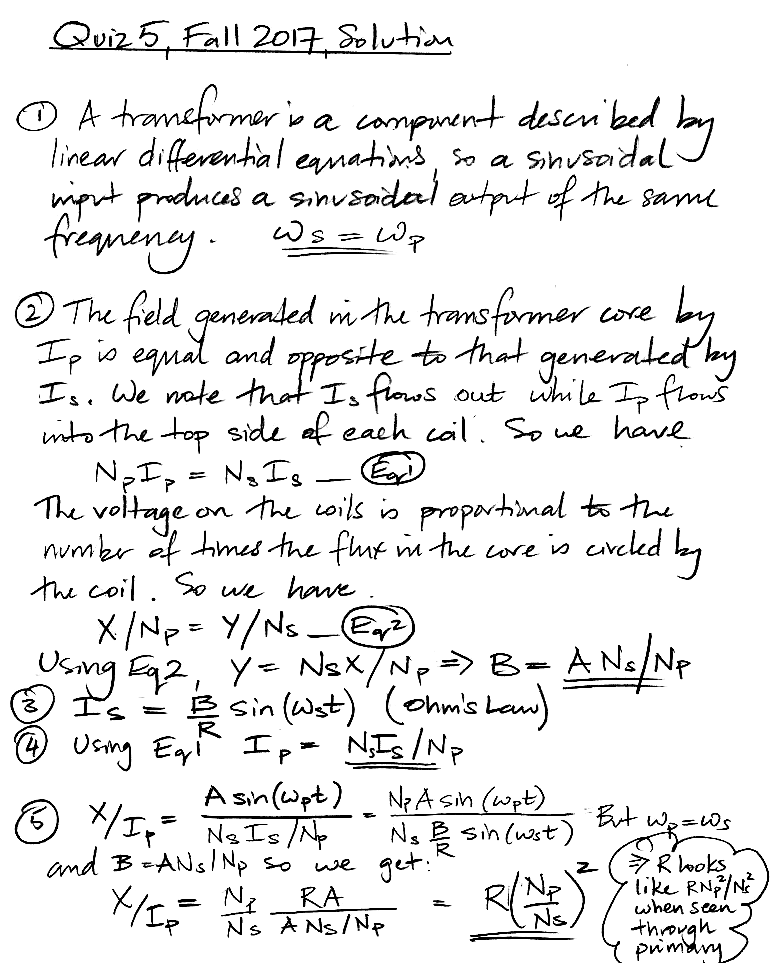 Quiz 5, Fall 2017, Solution
① A transformer is a component described by
linear differential equations, so a sinusoidal
input produces a sinusoidal output of the same
frequency. ωs = ωp
② The field generated in the transformer core by
Ip is equal and opposite to that generated by
Is. We note that Is flows out while Ip flows
into the top side of each coil. So we have
NpIp = NsIs — Eq1
The voltage on the coils is proportional to the
number of times the flux in the core is circled by
the coil. So we have.
X/Np = Y/Ns — Eq2
Using Eq2, Y = NsX/Np ⇒ B = A Ns/Np
③ Is = B/R sin(ωst) (Ohm's Law)
④ Using Eq1 Ip = NsIs/Np
⑤ X/Ip = A sin(ωpt) / (NsIs/Np) = Np A sin(ωpt) / (Ns B/R sin(ωst)) But ωp = ωs
and B = ANs/Np so we get:
X/Ip = Np/Ns RA/(A Ns/Np) = R(Np/Ns)²
⇒ R looks
like RNp²/Ns²
when seen
through
primary